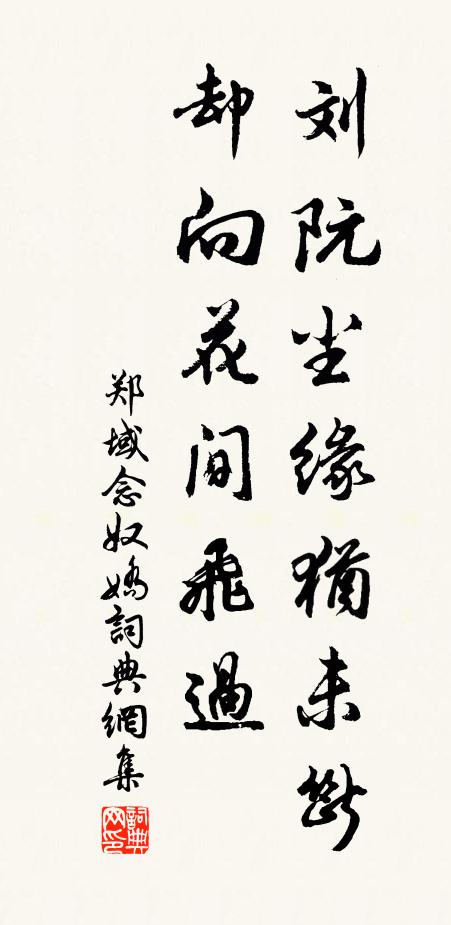 刘阮尘缘犹未断
却向花间飞過
郑域念奴娇詞典網集
詞典
网印